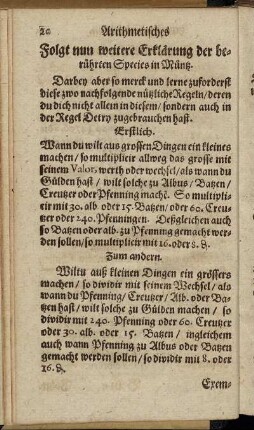 20 Arithmetisches
Folgt nun weitere Erklärung der be-
rührten Species in Müntz.
Darbey aber so merck und lerne zuforderst
diese zwo nachfolgende nützliche Regeln / deren
du dich nicht allein in diesem / sondern auch in
der Regel Detry zugebrauchen hast.
Erstlich.
Wann du wilt aus grossen Dingen ein kleines
machen / so multiplicir allweg das grosse mit
seinem Valor, werth oder wechsel / als wann du
Gülden hast / wilt solche zu Albus / Batzen /
Creutzer oder Pfenning machẽ. So multipli-
cir mit 30. alb oder 15. Batzen / oder 60. Creu-
tzer oder 240. Pfenningen. Deßgleichen auch
so Batzen oder alb. zu Pfenning gemacht wer-
den sollen / so multiplicir mit 16. oder 8. ₰.
Zum andern.
Wiltu auß kleinen Dingen ein grössers
machen / so dividir mit seinem Wechsel / als
wann du Pfenning / Creutzer / Alb. oder Ba-
tzen hast / wilt solche zu Gülden machen / so
dividir mit 240. Pfenning oder 60. Creutzer
oder 30. alb. oder 15. Batzen / ingleichem
auch wann Pfenning zu Albus oder Batzen
gemacht werden sollen / so dividir mit 8. oder
16. ₰.
Exem-